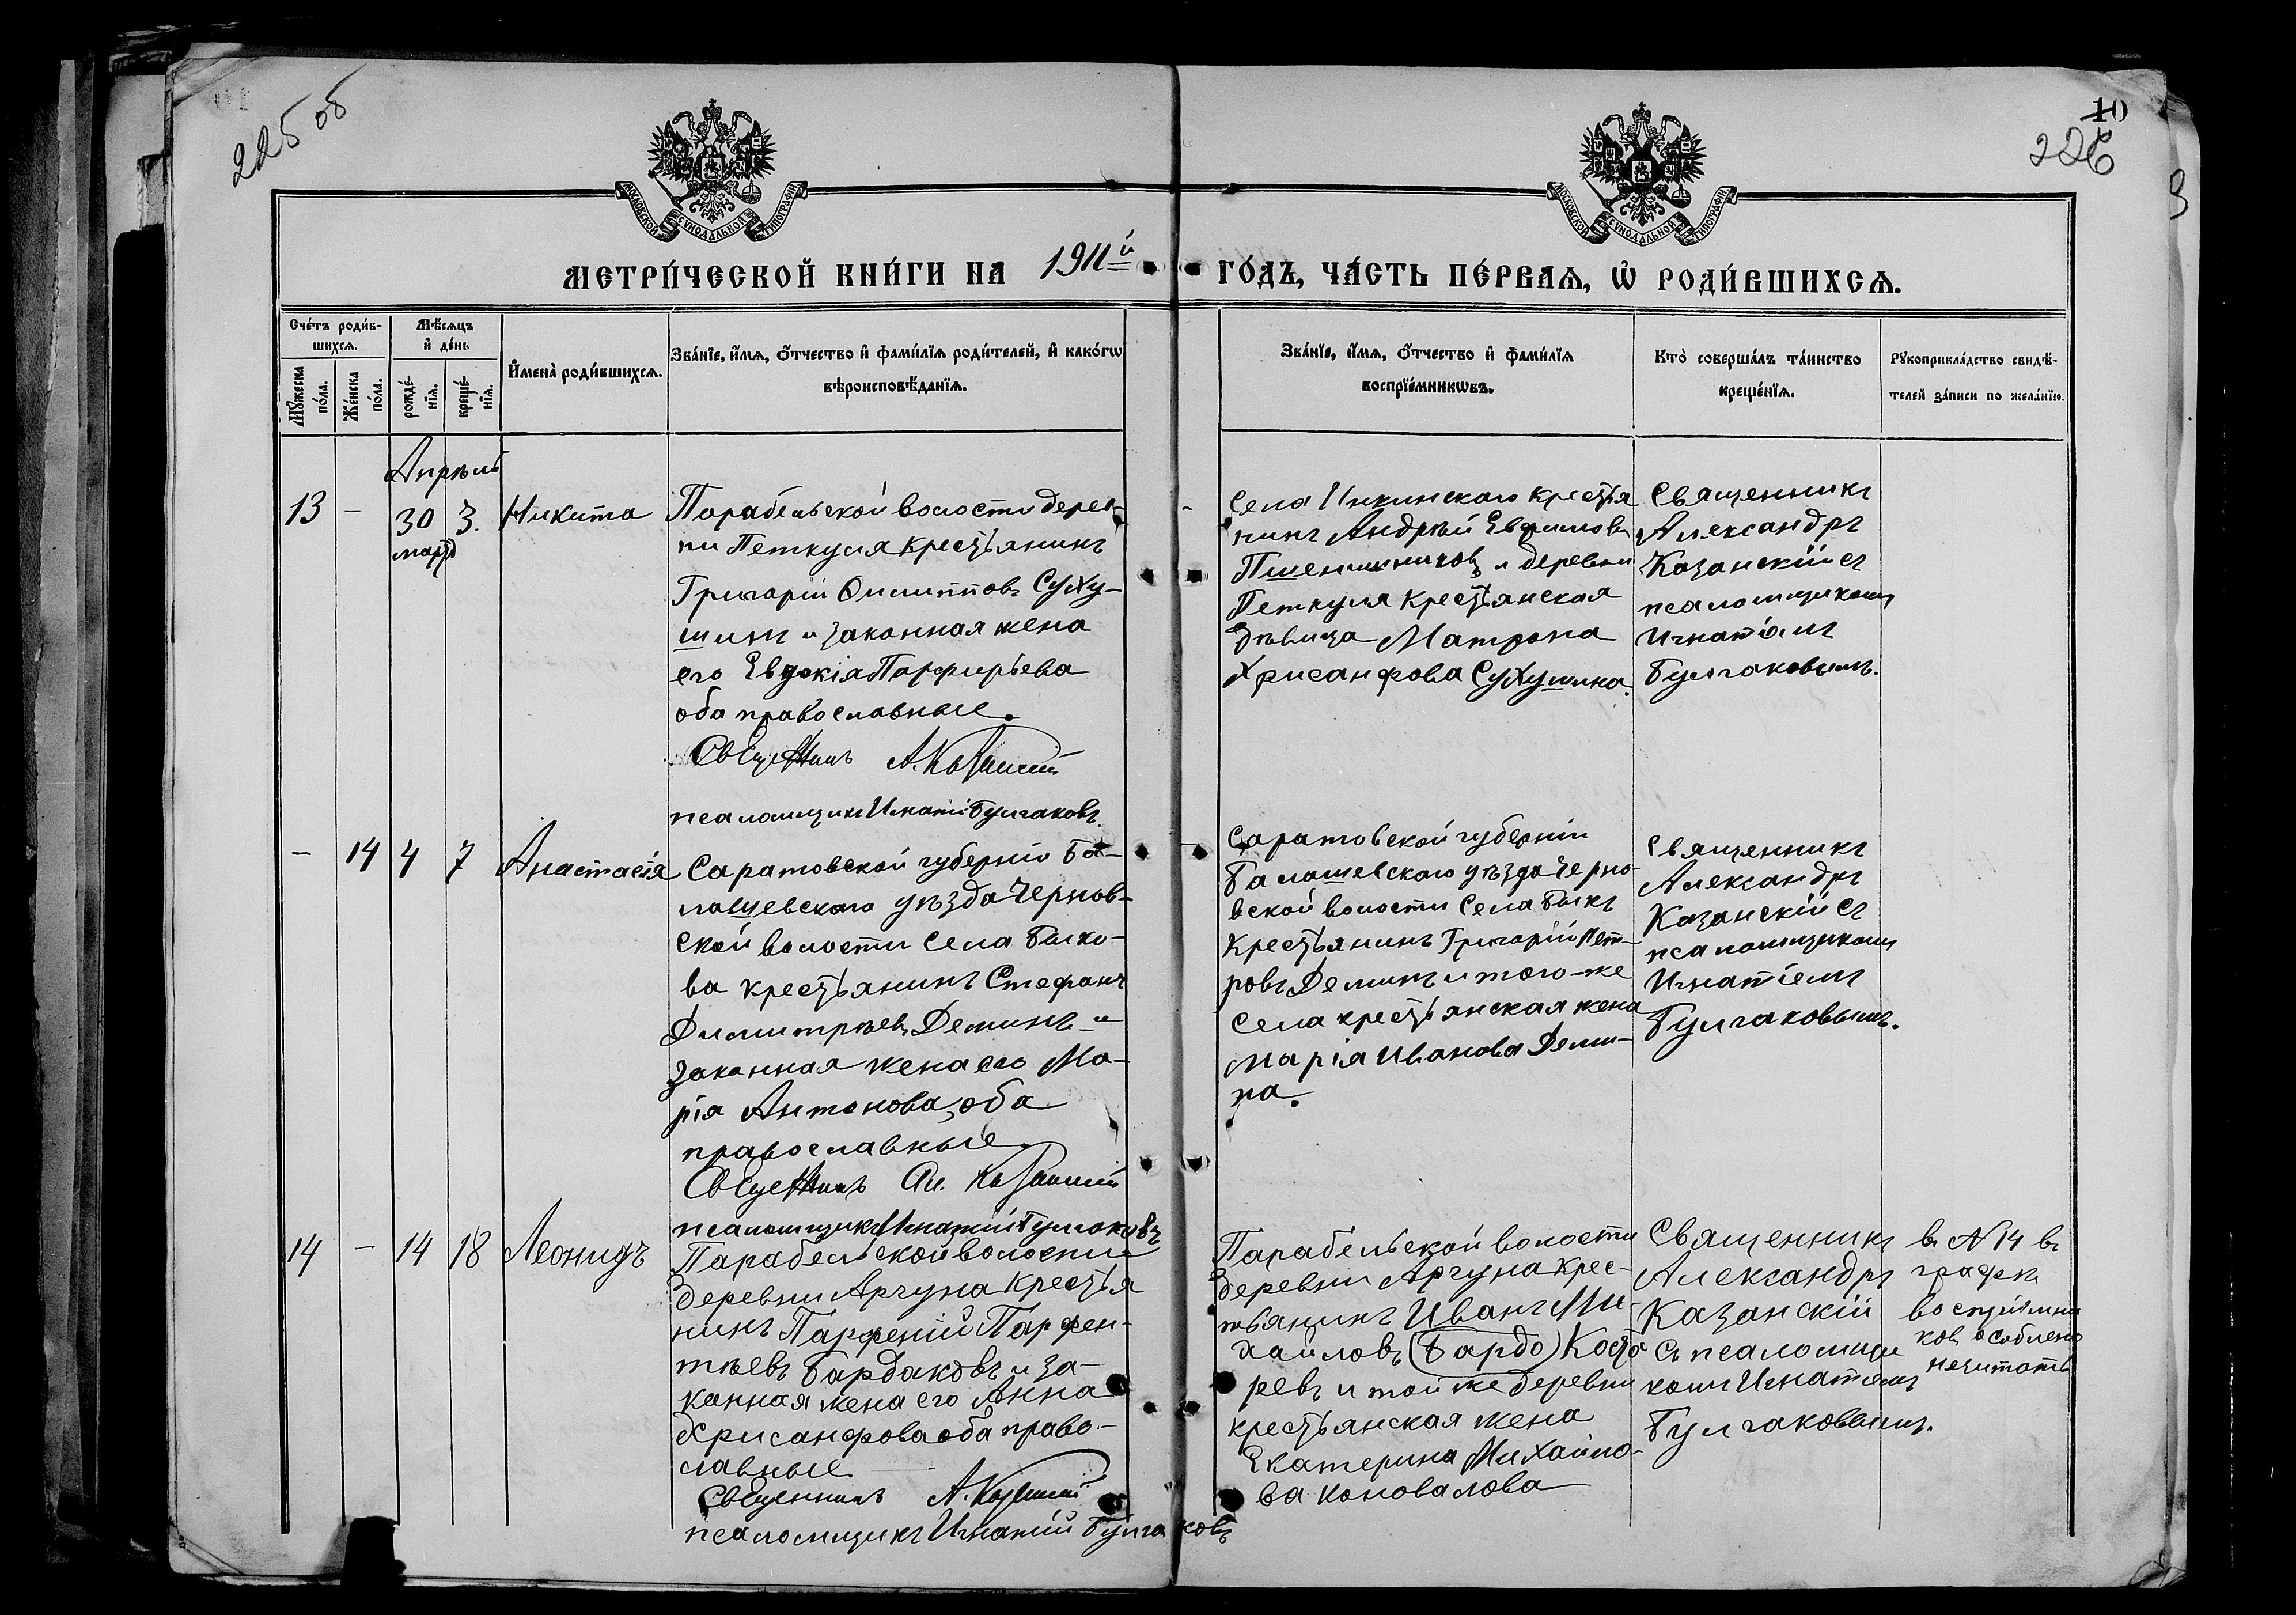 225 об
10
226
МОСКОВСКОЙ СѴНОДАЛЬНОЙ ТИПОГРАФІИ
МОСКОВСКОЙ СѴНОДАЛЬНОЙ ТИПОГРАФІИ
МЕТРИ́ЧЕСКОЙ КНИ́ГИ НА 1911й ГО́ДЪ, ЧА́СТЬ ПЕ́РВАѦ, Ѡ РОДИ́ВШИХСѦ.
Сче́тъ роди́в-
шихсѧ.
Мꙋ́жеска по́ла.
Же́нска по́ла.
Мѣ́сѧцъ
и де́нь
рожде́-
нїѧ.
креще́-
нїѧ.
И́мена̀ роди́вшихсѧ.
Зва́нїе, и́мѧ, ѻ́тчество и фами́лїѧ роди́телей, и како́гѡ
вѣроисповѣ́данїѧ.
Зва́нїе, и́мѧ, ѻ́тчество и фами́лїѧ
воспрїе́мникѡвъ.
Кто̀ соверша́лъ та́инство
креще́нїѧ.
Рꙋкоприкла́дство свидѣ́-
телей за́писи по жела́нїю.
Апрѣль
13 - 30 3. Никита
мартъ
Парабельской волости дерев-
ни Петкуля крестьянинъ
Григорій Филипповъ Суху-
шинъ и законная жена
его Евдокія Порфирьева
оба православные.
Священникъ А. Казанскій
псаломщикъ Игнатій Булгаковъ.
Села Инкинского крестья
нинъ Андрѣй Евфимовъ
Пшеничниковъ и деревни
Петкуля крестьянская
дѣвица Матрона
Хрисанфова Сухушина.
Священникъ
Александръ
Казанскій съ
псаломщикомъ
Игнатіемъ
Булгаковымъ.
- 14 4 7 Анастасія
Саратовской губерніи Ба-
лашевского уѣзда Чернов-
ской волости села Быко-
ва крестьянинъ Стефанъ
Димитріевъ Деминъ и
законная жена его Ма-
рія Антонова, оба
православные
Священникъ Ал. Казанскій
псаломщикъ Игнатій Булгаковъ
Саратовской губерніи
Балашевского уѣзда Черно-
вской волости села Быкъ
крестьянинъ Григорій Пет-
ровъ Деминъ и того-же
села крестьянская жена
Марія Иванова Деми-
на.
Священникъ
Александръ
Казанскій съ
псаломщикомъ
Игнатіемъ
Булгаковымъ.
14 - 14 18 Леонидъ
Парабельской волости
деревни Аргуна крестья
нинъ Парфеній Парфен-
тіевъ Бардаковъ и за-
конная жена его Анна
Хрисанфова оба право-
славные
Священникъ А. Казанскій
псаломщикъ Игнатій Булгаковъ
Парабельской волости
деревни Аргуна крес-
тьянинъ Иванъ Ми-
хайловъ (Бардо) Кося
ревъ и той же деревни
крестьянская жена
Екатерина Михайло-
ва Коновалова
Священникъ
Александръ
Казанскій
съ псаломщи
комъ Игнатіемъ
Булгаковымъ.
въ N 14 въ
графѣ
воспріемни
ковъ
нечитать